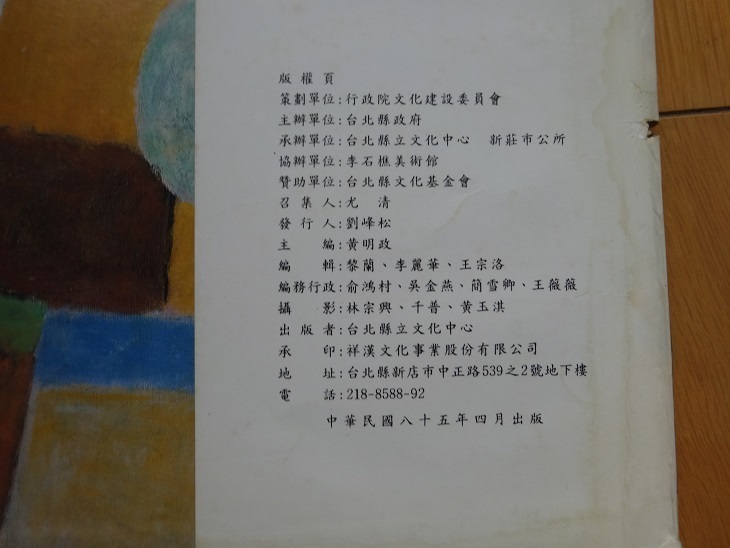 版權頁
策劃單位:行政院文化建設委員會
主辦單位:台北縣政府
承辦單位:台北縣立文化中心 新莊市公所
協辦單位:李石樵美術館
贊助單位:台北縣文化基金會
召集人:尤 清
發行人:劉峰松
主 編:黃明政
編 輯:黎蘭、李麗華、王宗洛
編務行政:俞鴻村、吳金燕、簡雪卿、王薇薇
攝 影:林宗興、千普、黃玉淇
出版者:台北縣立文化中心
承 印:祥漢文化事業股份有限公司
地 址:台北縣新店市中正路539之2號地下樓
電 話:218-8588-92
中華民國八十五年四月出版